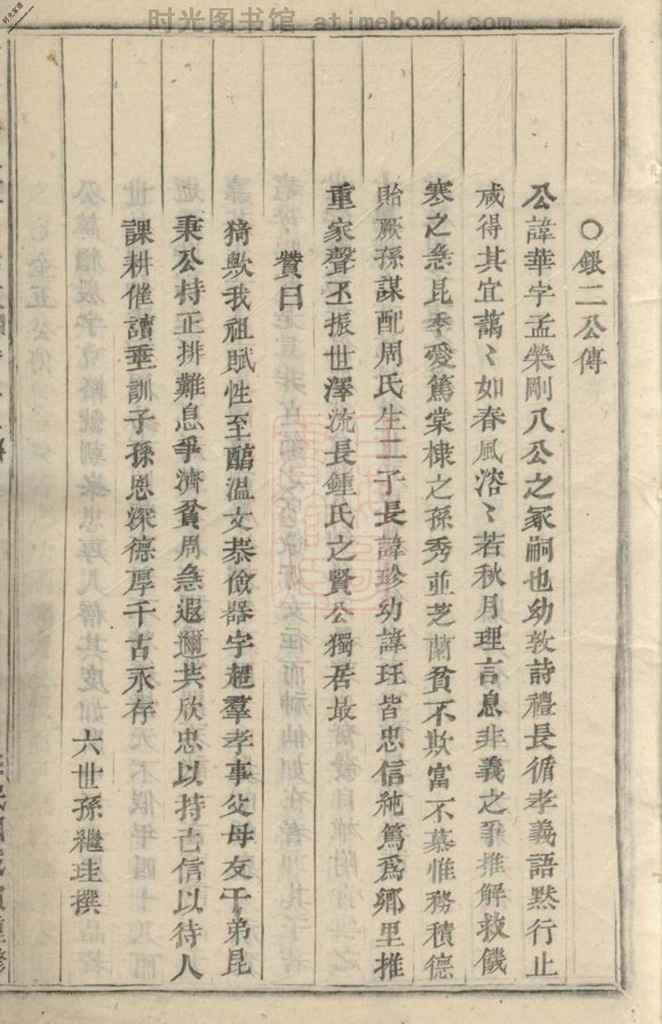 时光图书馆 atimebook.com
○銀二公傳
公諱華字孟榮剛八公之冢嗣也幼敦詩禮長循孝義語默行止
咸得其宜藹〻如春風溶〻若秋月理言息非義之爭推解救饑
寒之急昆季愛篤棠棣之孫秀並芝蘭貧不欺富不慕惟務積德
貽厥孫謀配周氏生二子長諱珍幼諱玨皆忠信純篤爲鄉里推
重家聲丕振世澤流長鍾氏之賢公獨居最
贊曰
猗歟我祖賦性至醇溫文恭儉器宇超羣孝事父母友于弟昆
秉公持正排難息爭濟貧周急遐邇共欣忠以持己信以待人
課耕催讀垂訓子孫恩深德厚千古永存
六世孫繼珪撰